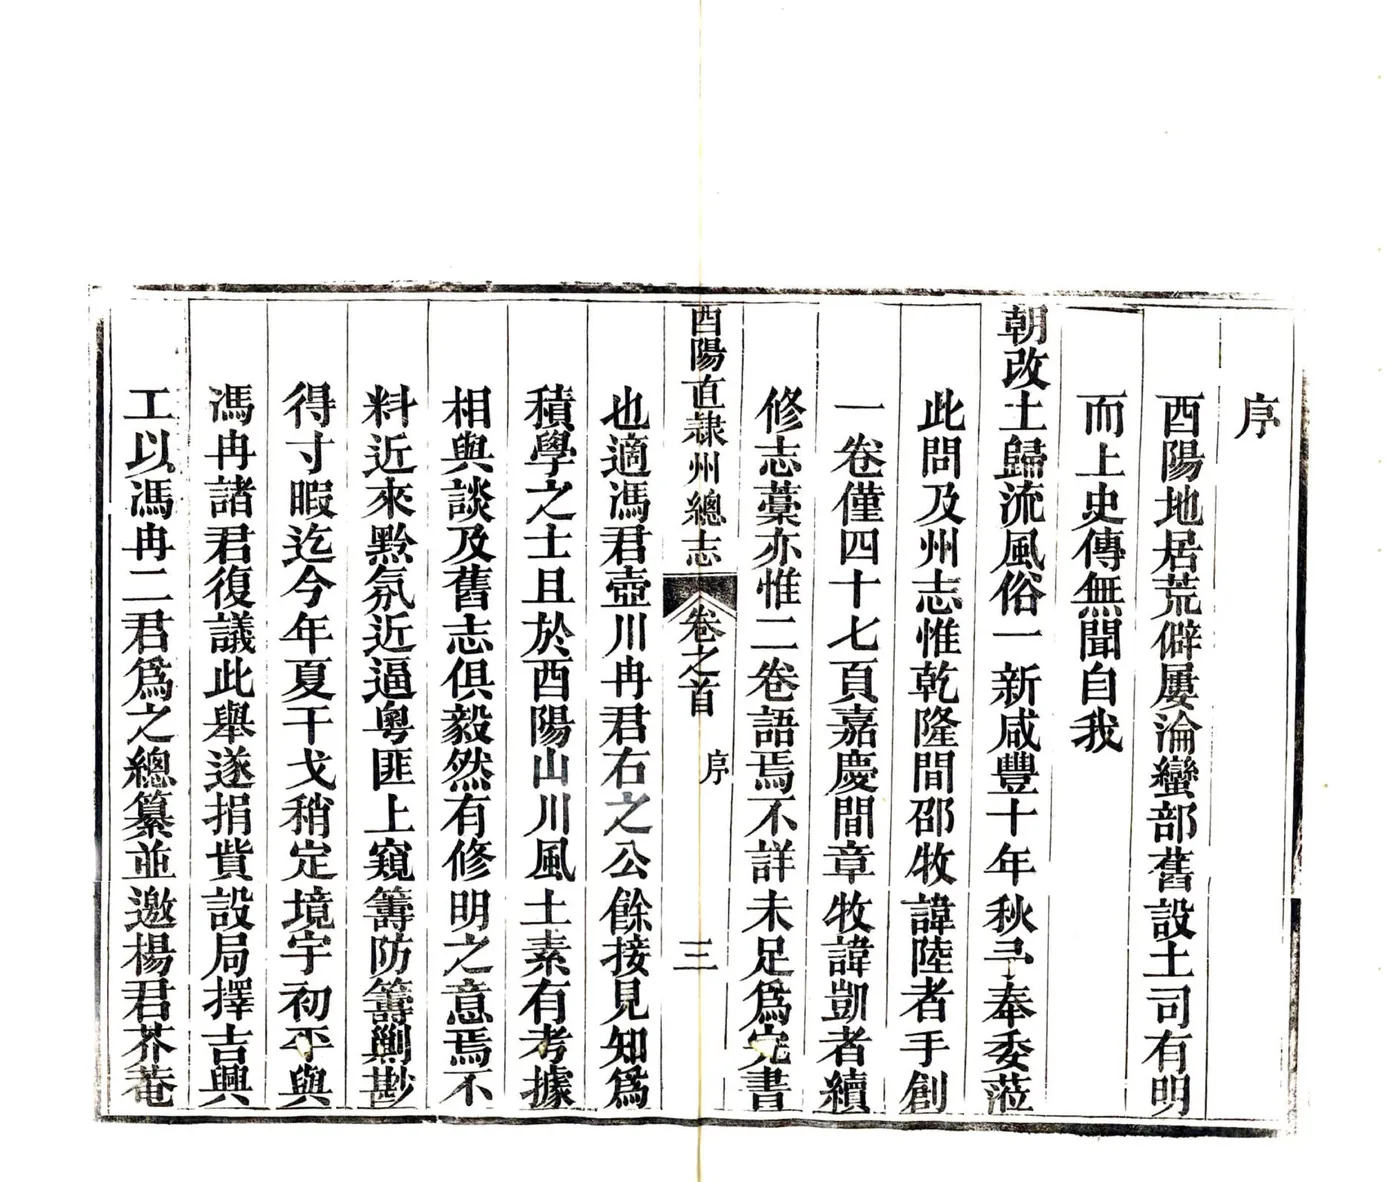 序
酉陽地居荒僻屢淪蠻部舊設土司有明
而上史傳無聞自我
朝改土歸流風俗一新咸豐十年秋予奉委蒞
此問及州志惟乾隆間邵牧諱陸者手創
一卷僅四十七頁嘉慶間章牧諱凱者續
修志藁亦惟二卷語焉不詳未足爲完書
酉陽直隸州總志 卷之首 序 三
也適馮君壺川冉君右之公餘接見知爲
積學之士且於酉陽山川風土素有考據
相與談及舊志俱毅然有修明之意焉不
料近來黔氛近逼粵匪上窺籌防籌剿尠
得寸暇迄今年夏干戈稍定境宇初平與
馮冉諸君復議此舉遂捐貲設局擇吉興
工以馮冉二君爲之總纂並邀楊君芥菴